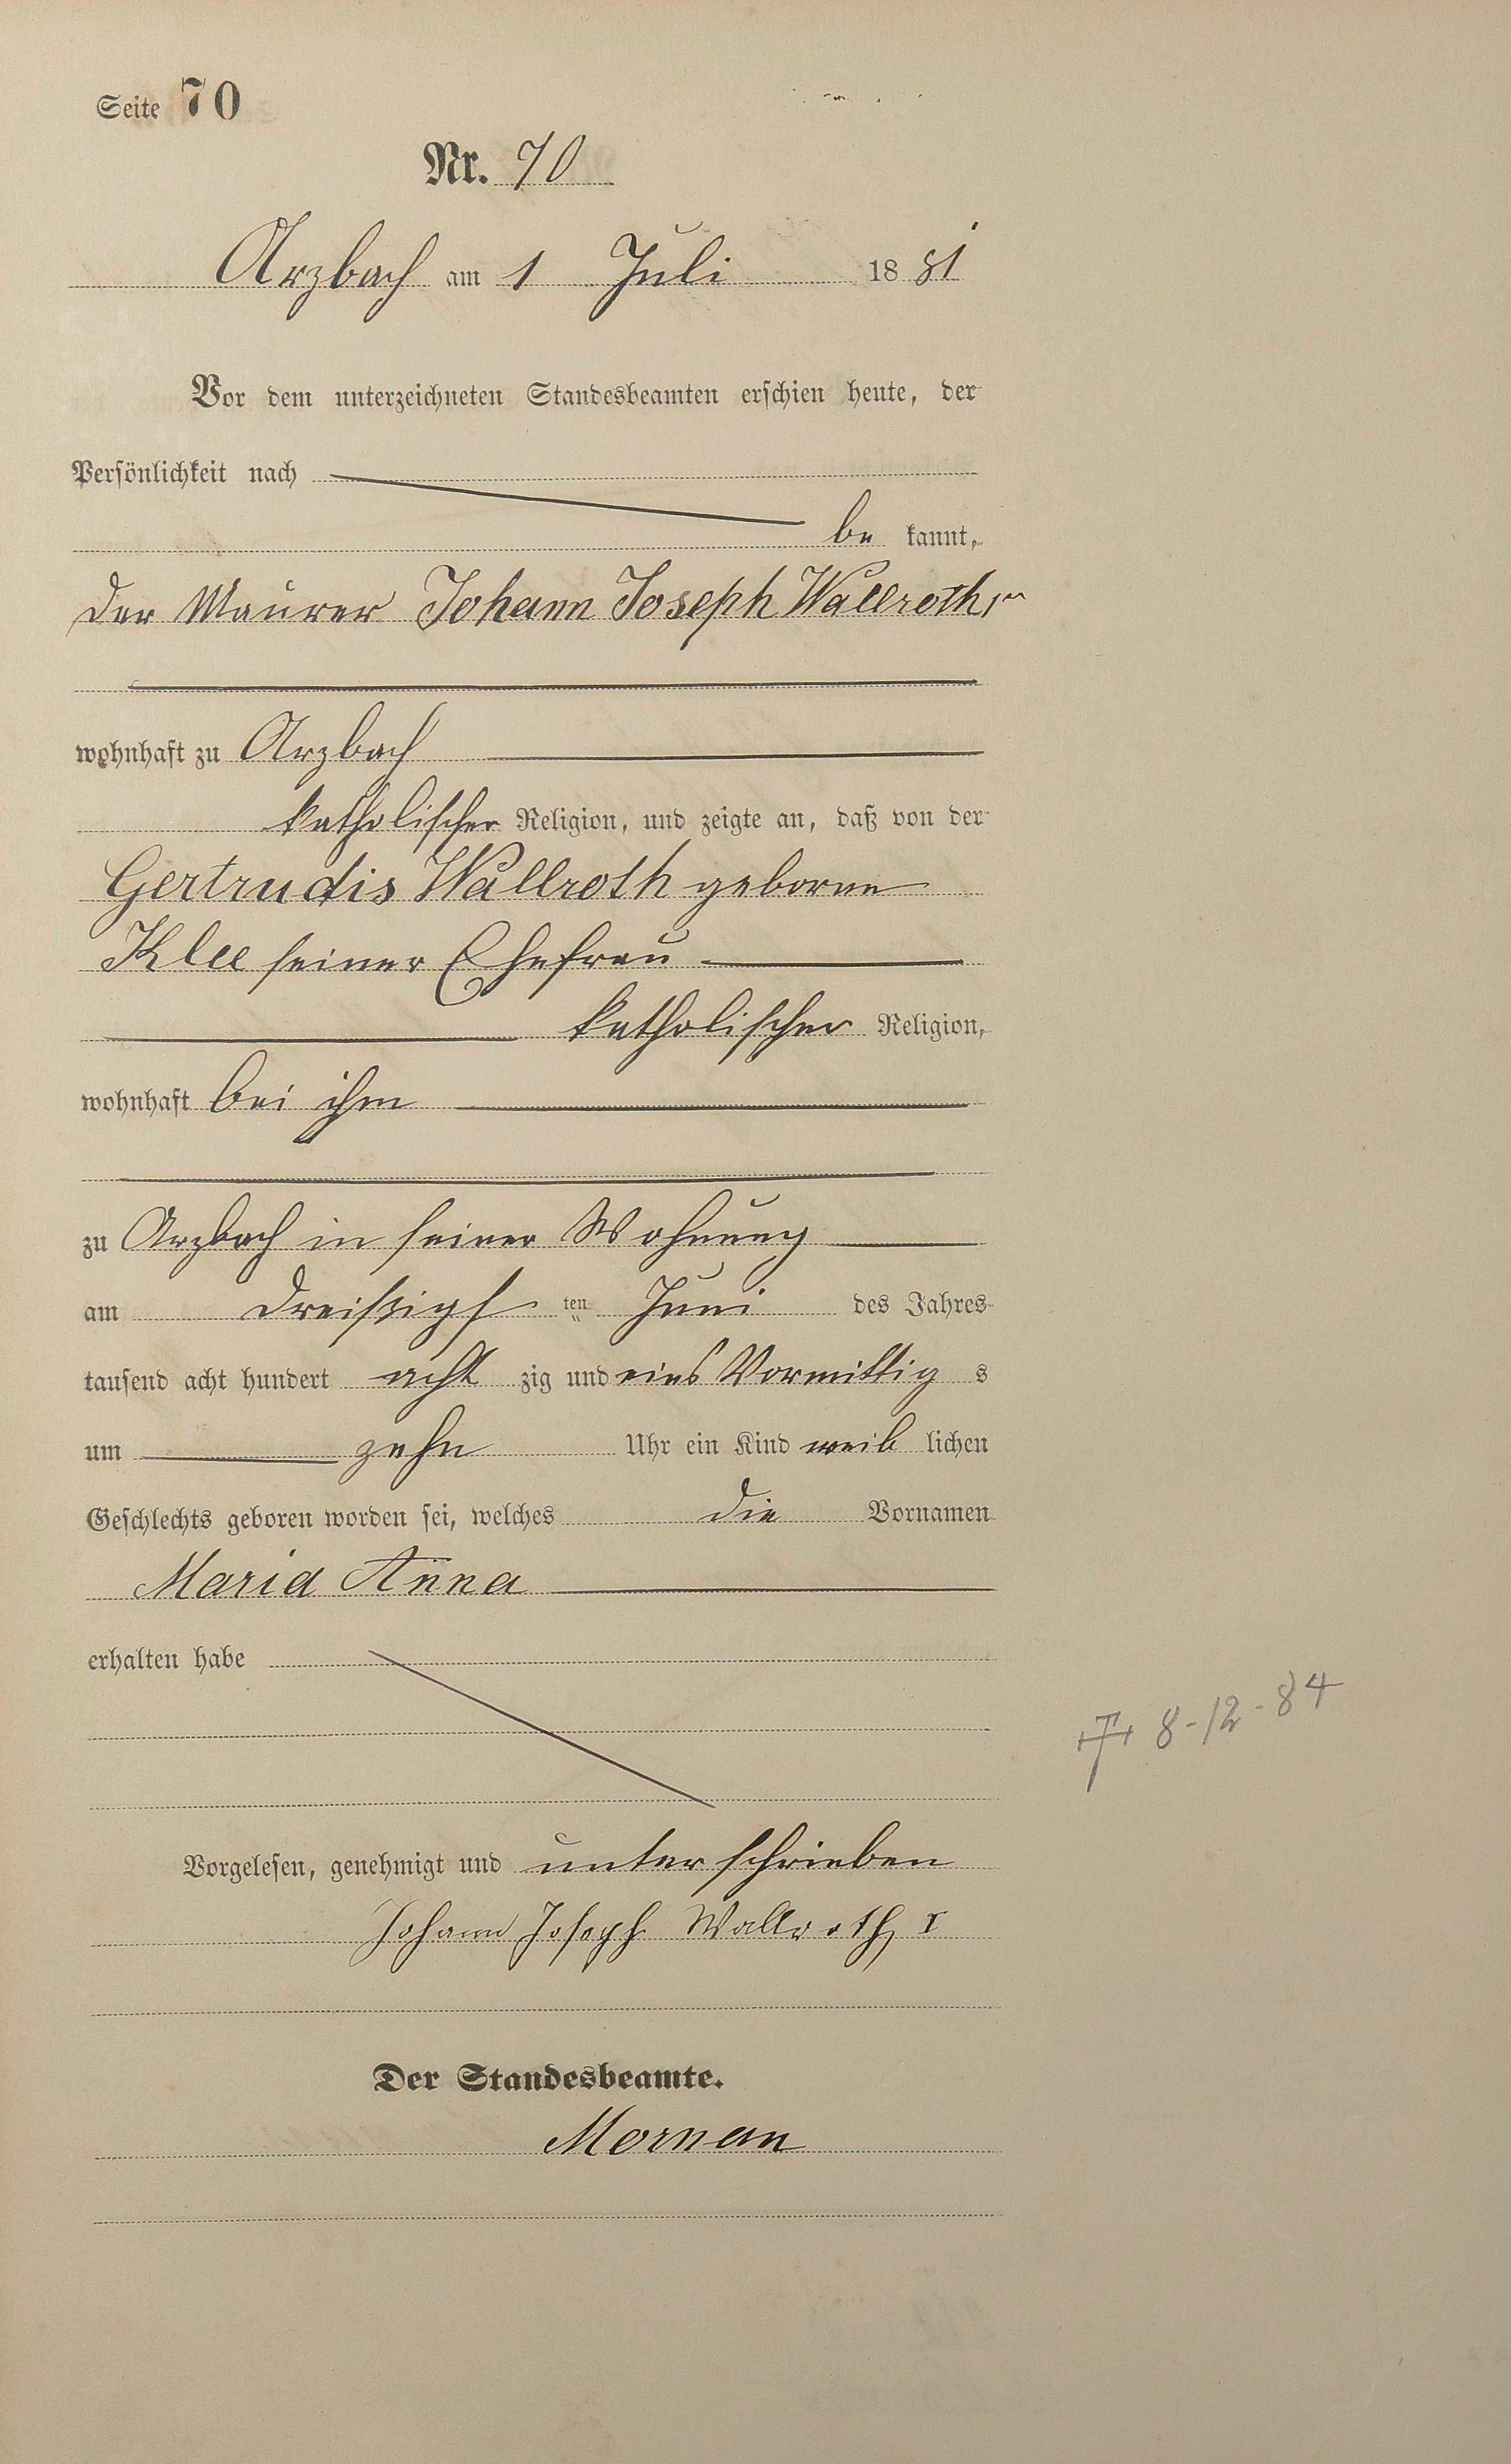 Seite 70
Nr. 70
Arzbach am 1 Juli 1881
Vor dem unterzeichneten Standesbeamten erschien heute, der
Persönlichkeit nach
be kannt,
der Maurer Johann Joseph Wallroth
wohnhaft zu Arzbach
katholischer Religion, und zeigte an, daß von der
Gertrudis Wallroth geborne
Klee seiner Ehefrau
katholischer Religion,
wohnhaft bei ihm
zu Arzbach in seiner Wohnung
am dreißigs ten Juni des Jahres
tausend acht hundert acht zig und eins Vormittag s
um zehn Uhr ein Kind weib lichen
Geschlechts geboren worden sei, welches die Vornamen
Maria Anna
erhalten habe
8-12-84
Vorgelesen, genehmigt und unterschrieben
Johann Joseph Wallroth I
Der Standesbeamte.